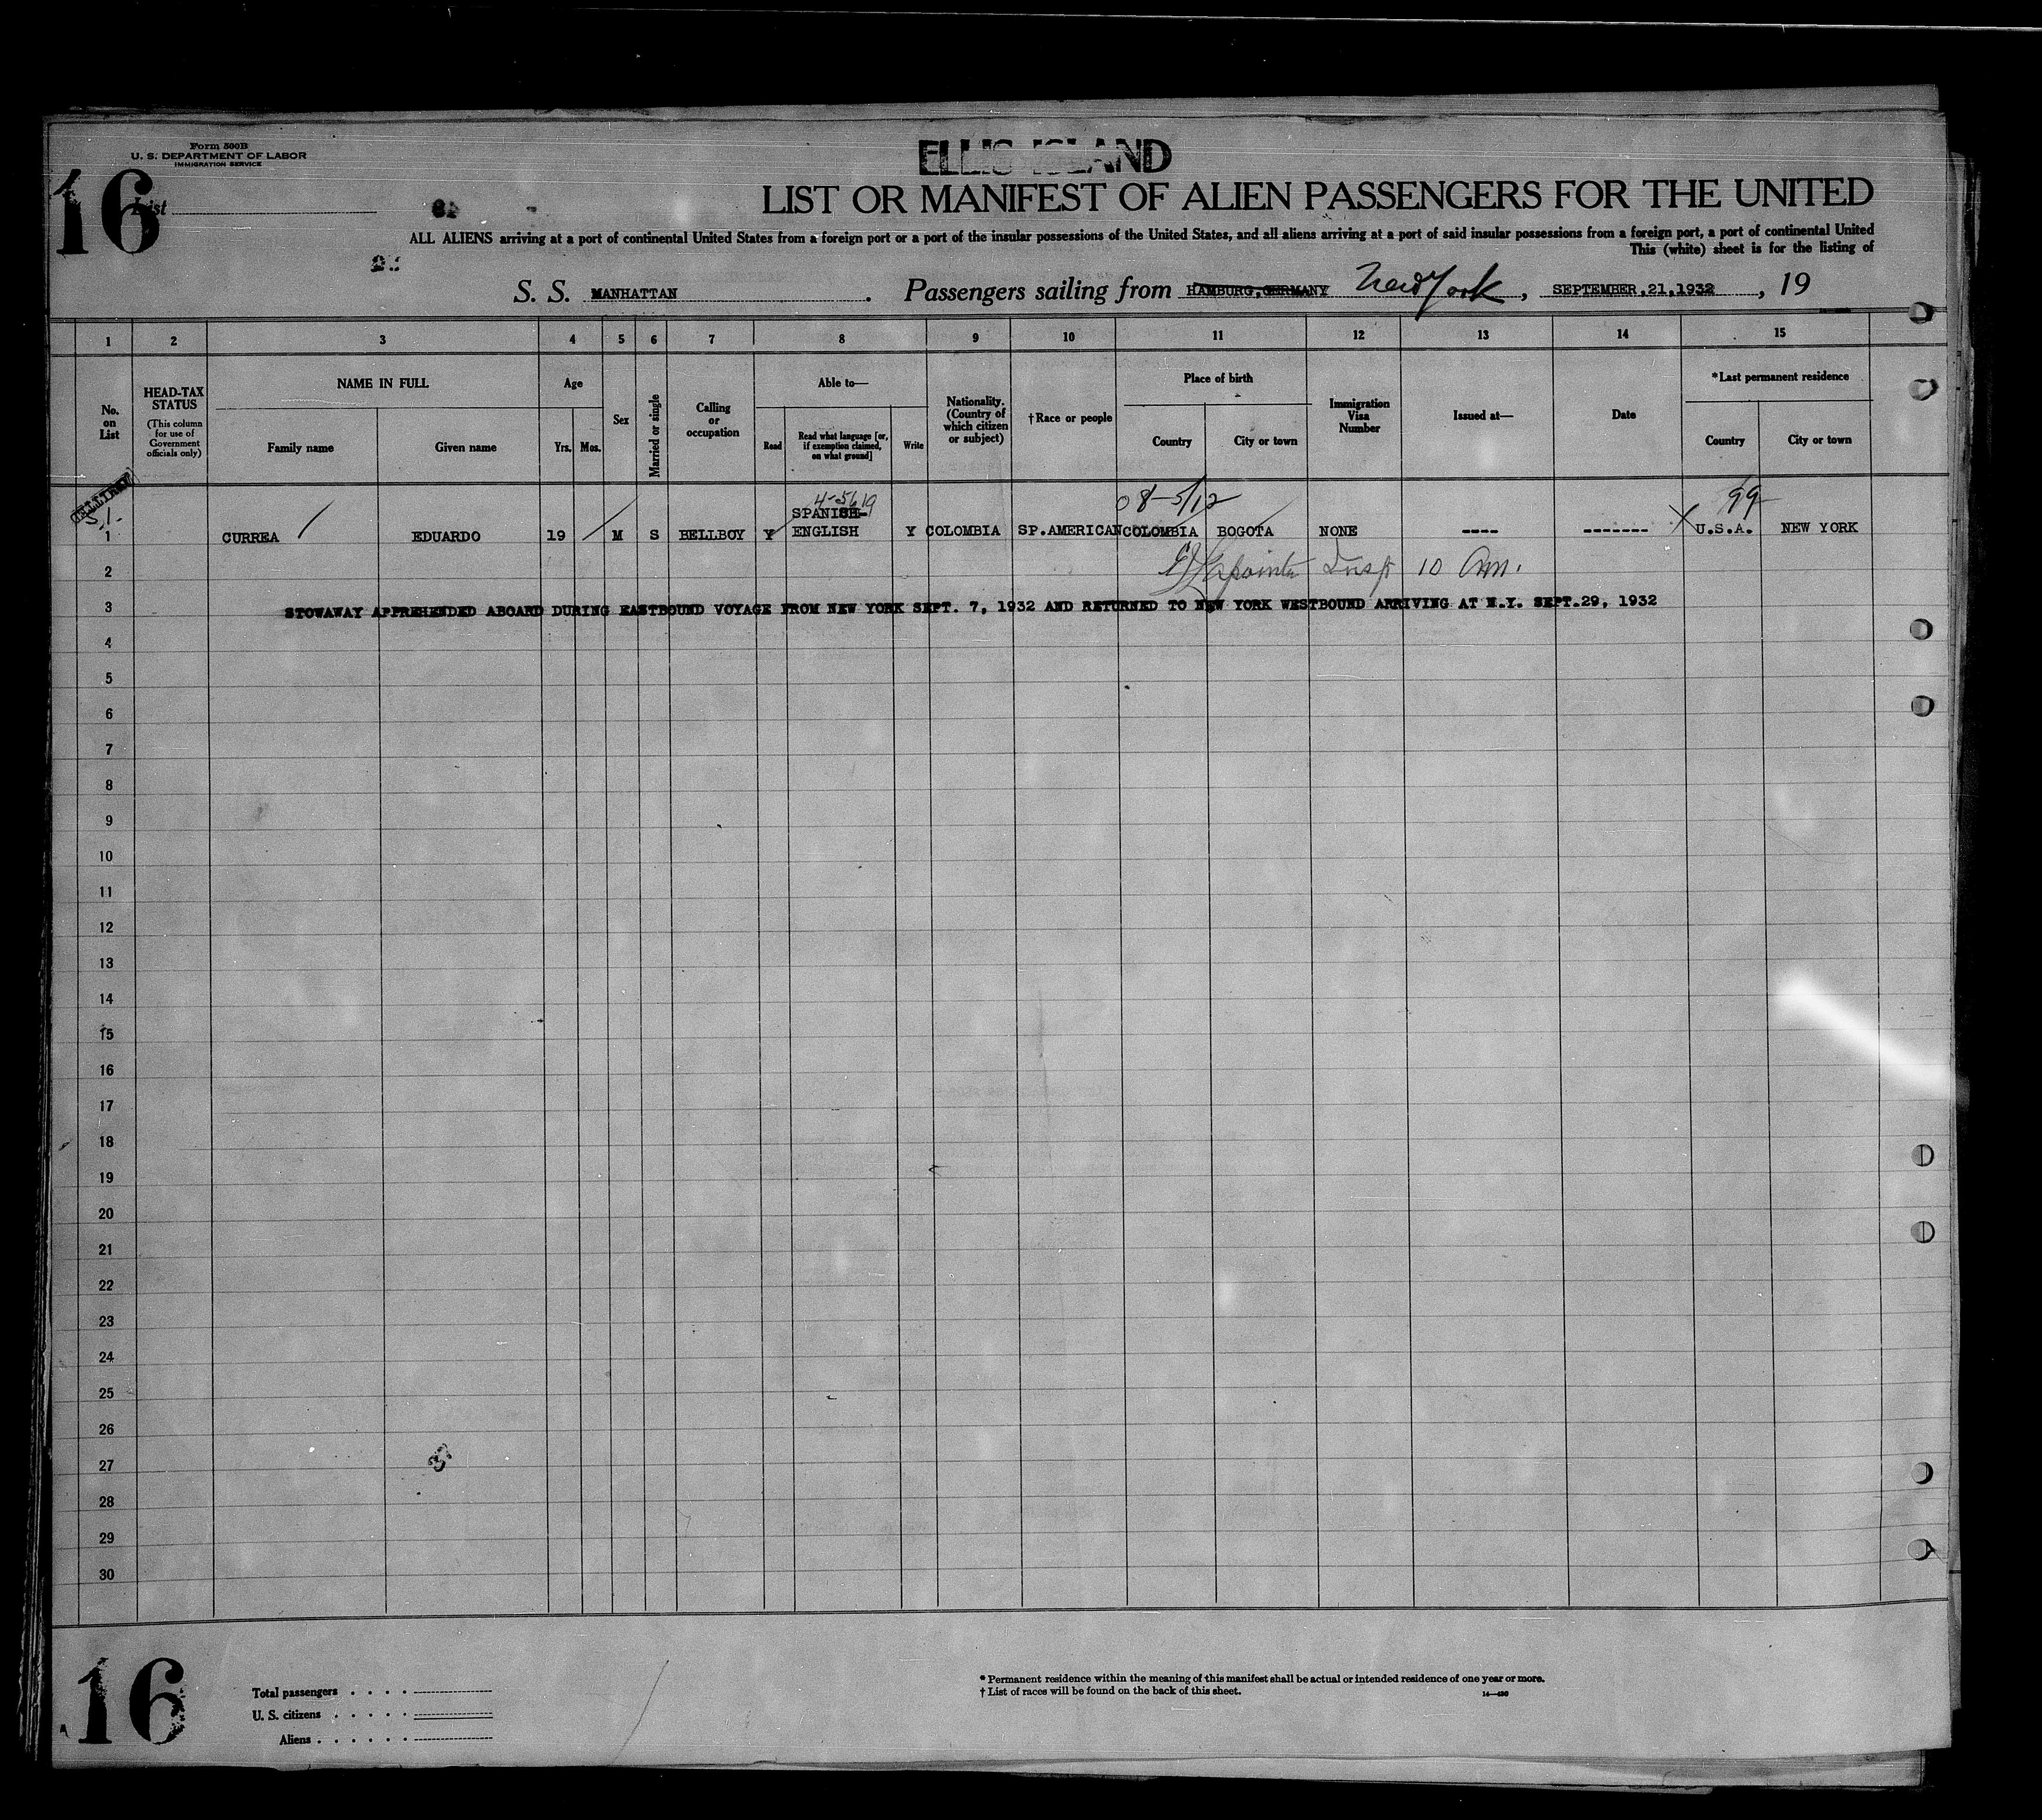 Form 500B
U. S. DEPARTMENT OF LABOR
IMMIGRATION SERVICE
ELLIS ISLAND
16
List
LIST OR MANIFEST OF ALIEN PASSENGERS FOR THE UNITED
ALL ALIENS arriving at a port of continental United States from a foreign port or a port of the insular possessions of the United States, and all aliens arriving at a port of said insular possessions from a foreign port, a port of continental United
This (white) sheet is for the listing of
S. S. MANHATTAN . Passengers sailing from HAMBURG,GERMANY New York , SEPTEMBER,21,1932 , 19
1 2 3 4 5 6 7 8 9 10 11 12 13 14 15
No. on List
HEAD-TAX STATUS
(This column for use of Government officials only)
NAME IN FULL
Family name Given name
Age
Yrs. Mos.
Sex
Married or single
Calling or occupation
Able to—
Read
Read what language [or, if exemption claimed, on what ground]
Write
Nationality. (Country of which citizen or subject)
†Race or people
Place of birth
Country City or town
Immigration Visa Number
Issued at—
Date
*Last permanent residence
Country City or town
4-5619 08-5/12 99
SPANISH-
1 CURREA EDUARDO 19 M S BELLBOY Y ENGLISH Y COLOMBIA SP.AMERICAN COLOMBIA BOGOTA NONE ---- ------- X U.S.A. NEW YORK
2 Lapointe Insp 10 Am.
3 STOWAWAY APPREHENDED ABOARD DURING EASTBOUND VOYAGE FROM NEW YORK SEPT. 7, 1932 AND RETURNED TO NEW YORK WESTBOUND ARRIVING AT N.Y. SEPT.29, 1932
4
5
6
7
8
9
10
11
12
13
14
15
16
17
18
19
20
21
22
23
24
25
26
27
28
29
30
16
Total passengers . . . .
U. S. citizens . . . . .
Aliens . . . . . .
* Permanent residence within the meaning of this manifest shall be actual or intended residence of one year or more.
† List of races will be found on the back of this sheet.